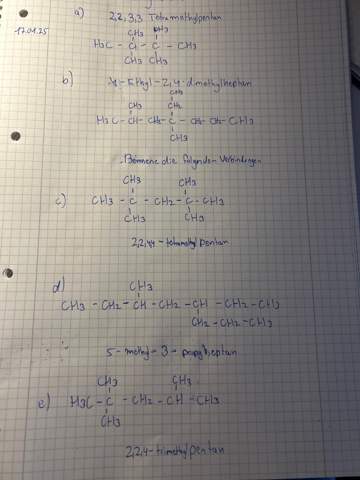 a) 2,2,3,3 Tetramethylpentan
17.01.25
CH3 CH3
H3C - C - C - CH3
CH3 CH3
b)
-Ethyl-2,4-dimethylheptan
CH3
CH3 CH2
H3C - CH - CH2 - C - CH2 - CH2 - CH3
CH3
Benenne die folgenden Verbindungen
CH3 CH3
c) CH3 - C - CH2 - C - CH3
CH3 CH3
2,2,4,4-tetramethylpentan
d) CH3
CH3 - CH2 - CH - CH2 - CH - CH2 - CH3
CH2 - CH2 - CH3
5-methyl-3-propylheptan
CH3 CH3
e) H3C - C - CH2 - CH - CH3
CH3
2,2,4-trimethylpentan